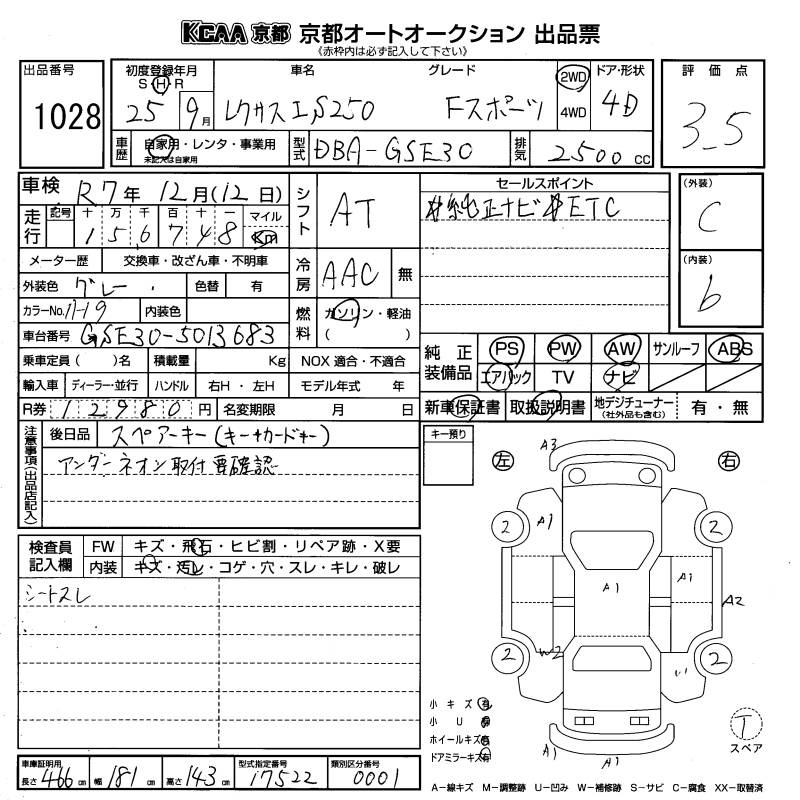 KCAA 京都 京都オートオークション 出品票
《赤枠内は必ず記入して下さい》
出品番号
1028
初度登録年月
S H R
25 9月
車名
レクサスIS250
グレード
Fスポーツ
2WD
4WD
ドア・形状
4D
評価点
3.5
車歴
自家用・レンタ・事業用
未記入は自家用
型式
DBA-GSE30
排気
2500 CC
車検 R7年 12月(12日)
走行
記号 十 万 千 百 十 一 マイル
1 5 6 7 4 8 Km
メーター歴 交換車・改ざん車・不明車
外装色 グレー 色替 有
カラーNo. 1J19 内装色
車台番号 GSE30-5013683
乗車定員 ( )名 積載量 Kg
輸入車 ディーラー・並行 ハンドル 右H・左H
R券 12980円 名変期限 月 日
シフト
AT
冷房
AAC 無
燃料
ガソリン・軽油
( )
NOX 適合・不適合
モデル年式 年
セールスポイント
#純正ナビ#ETC
(外装)
C
(内装)
b
純正装備品
PS PW AW サンルーフ ABS
エアバック TV ナビ
新車保証書 取扱説明書 地デジチューナー 有・無
(社外品も含む)
注意事項(出品店記入)
後日品 スペアーキー(キー+カードキー)
アンダーネオン取付 要確認
キー預り
左
右
検査員記入欄
FW キズ・飛石・ヒビ割・リペア跡・X要
内装 キズ・汚レ・コゲ・穴・スレ・キレ・破レ
シートスレ
A3
A1
2 2
A1 A1
A2
W2
2 2
A1 A1
小キズ 有
小U 有
ホイールキズ 有
ドアミラーキズ 有
T
スペア
車庫証明用
長さ 466 cm 幅 181 cm 高さ 143 cm
型式指定番号
17522
類別区分番号
0001
A-線キズ M-調整跡 U-凹み W-補修跡 S-サビ C-腐食 XX-取替済